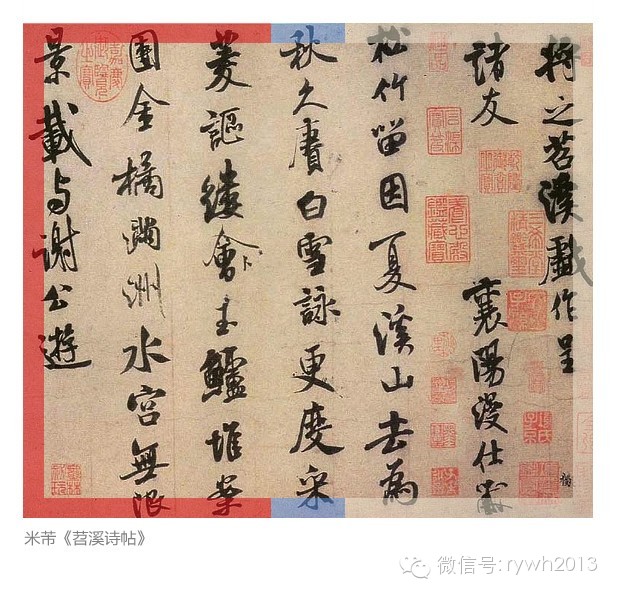 將之苕溪戲作呈
諸友
襄陽漫仕黻
松竹留因夏溪山去為
秋久賡白雪詠更度采
菱謳縷會玉鱸堆案
團金橘滿洲水宮無限
景載与謝公遊
米芾《苕溪诗帖》
微信号: rywh2013